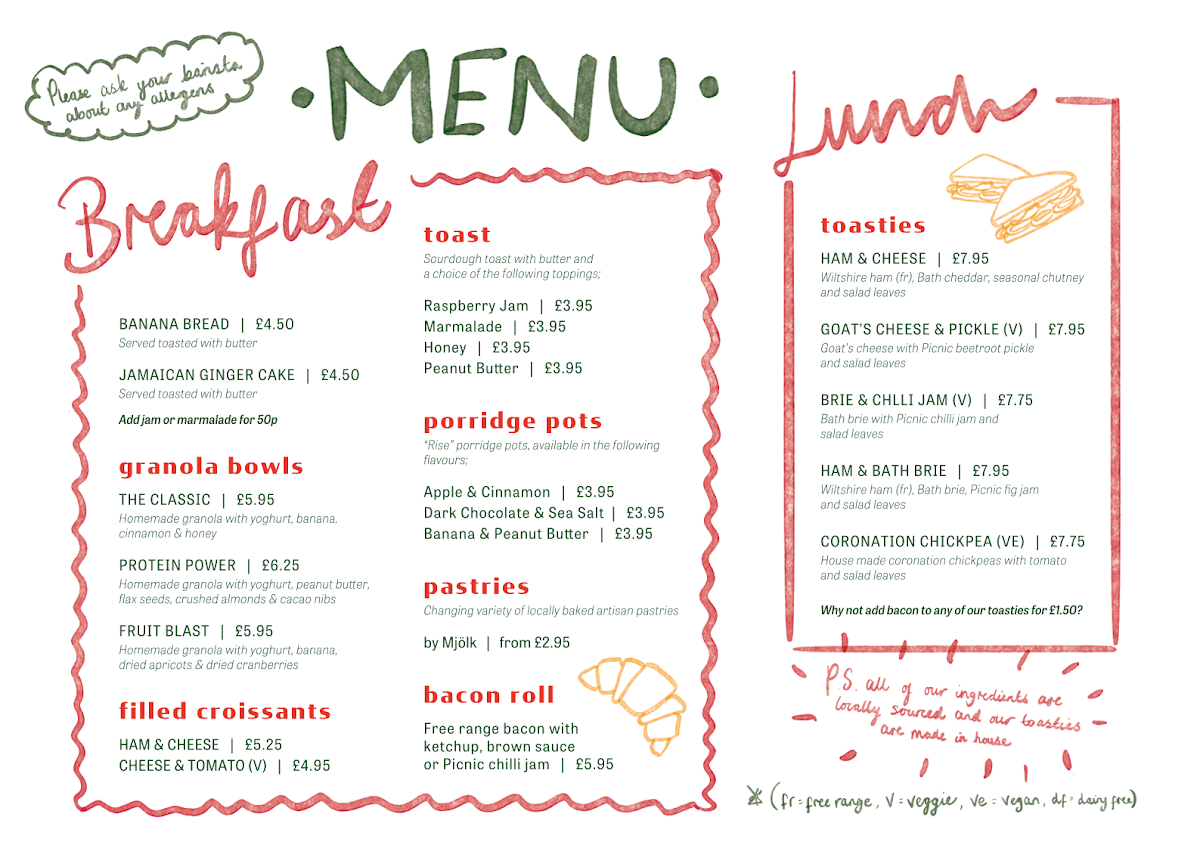 Please ask your barista
about any allergens
·MENU·
Breakfast
BANANA BREAD | £4.50
Served toasted with butter
JAMAICAN GINGER CAKE | £4.50
Served toasted with butter
Add jam or marmalade for 50p
granola bowls
THE CLASSIC | £5.95
Homemade granola with yoghurt, banana,
cinnamon & honey
PROTEIN POWER | £6.25
Homemade granola with yoghurt, peanut butter,
flax seeds, crushed almonds & cacao nibs
FRUIT BLAST | £5.95
Homemade granola with yoghurt, banana,
dried apricots & dried cranberries
filled croissants
HAM & CHEESE | £5.25
CHEESE & TOMATO (V) | £4.95
toast
Sourdough toast with butter and
a choice of the following toppings;
Raspberry Jam | £3.95
Marmalade | £3.95
Honey | £3.95
Peanut Butter | £3.95
porridge pots
“Rise” porridge pots, available in the following
flavours;
Apple & Cinnamon | £3.95
Dark Chocolate & Sea Salt | £3.95
Banana & Peanut Butter | £3.95
pastries
Changing variety of locally baked artisan pastries
by Mjölk | from £2.95
bacon roll
Free range bacon with
ketchup, brown sauce
or Picnic chilli jam | £5.95
Lunch
toasties
HAM & CHEESE | £7.95
Wiltshire ham (fr), Bath cheddar, seasonal chutney
and salad leaves
GOAT'S CHEESE & PICKLE (V) | £7.95
Goat's cheese with Picnic beetroot pickle
and salad leaves
BRIE & CHLLI JAM (V) | £7.75
Bath brie with Picnic chilli jam and
salad leaves
HAM & BATH BRIE | £7.95
Wiltshire ham (fr), Bath brie, Picnic fig jam
and salad leaves
CORONATION CHICKPEA (VE) | £7.75
House made coronation chickpeas with tomato
and salad leaves
Why not add bacon to any of our toasties for £1.50?
P.S. all of our ingredients are
locally sourced and our toasties
are made in house
(fr = free range, V = veggie, ve = vegan, df = dairy free)